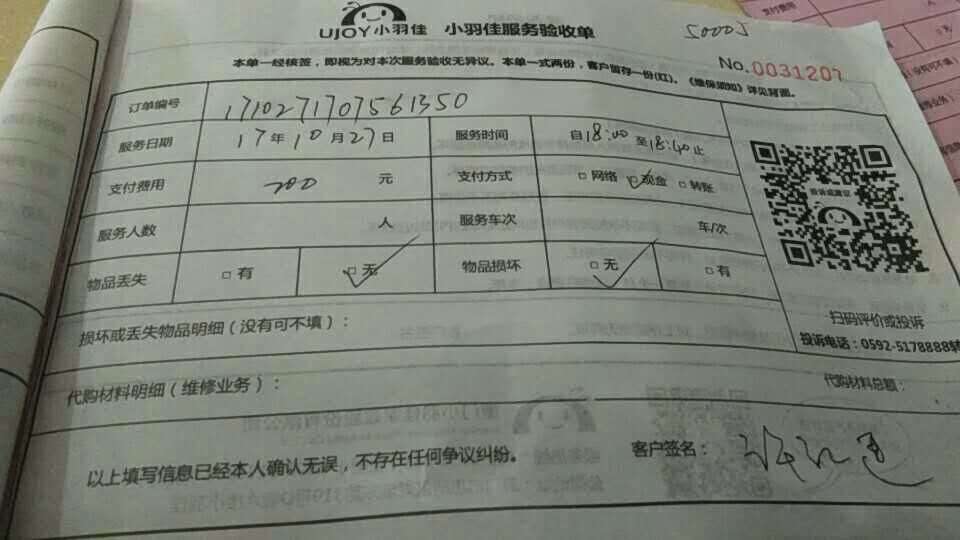 UJOY小羽佳 小羽佳服务验收单
本单一经核签，即视为对本次服务验收无异议。本单一式两份，客户留存一份(红)。《维保须知》详见背面。
No.0031207
订单编号 1710271707561350
服务日期 17年10月27日 服务时间 自18:00至18:40止
支付费用 200 元 支付方式 □网络 ☑现金 □转账
服务人数 人 服务车次 车/次
物品丢失 □有 ☑无 物品损坏 ☑无 □有
投诉或建议
扫码评价或投诉
投诉电话：0592-5178888转
损坏或丢失物品明细（没有可不填）：
代购材料明细（维修业务）： 代购材料总额：
以上填写信息已经本人确认无误，不存在任何争议纠纷。 客户签名：
支付费用